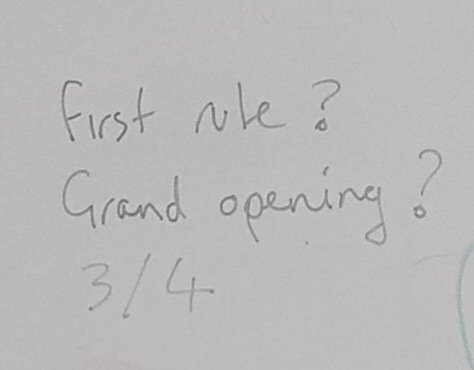 First rule?
Grand opening?
3/4